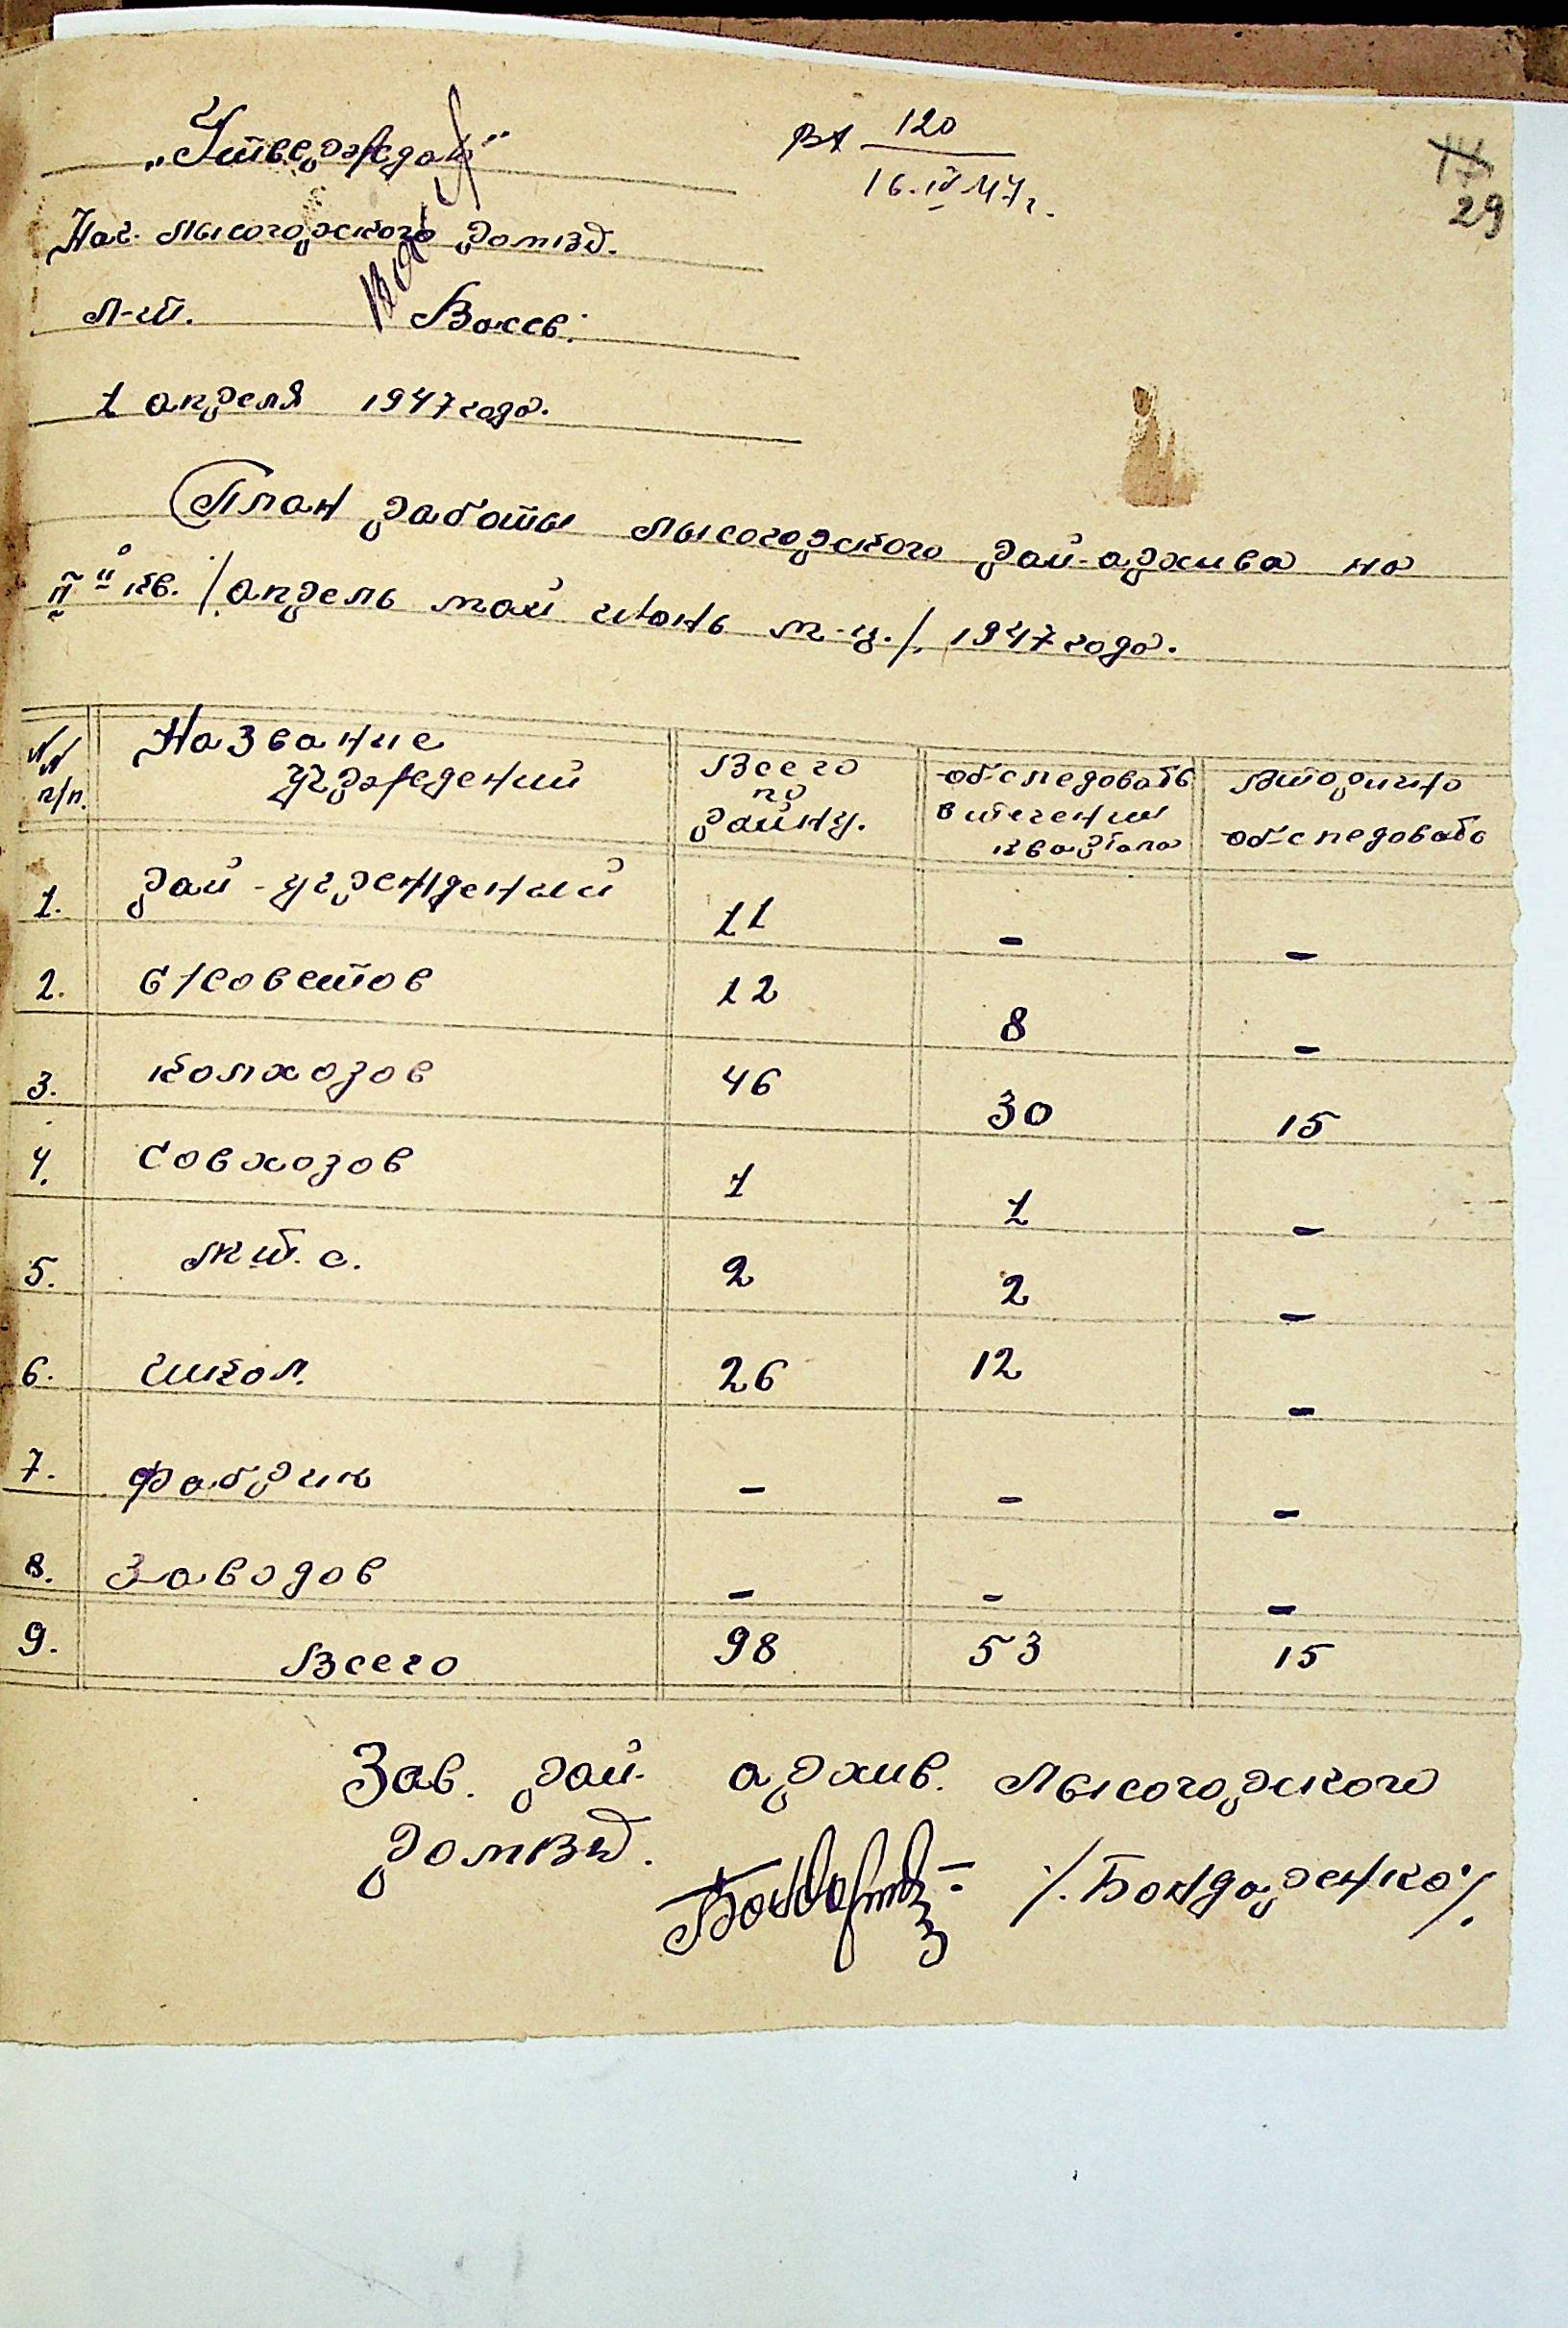 „Утверждаю"
вх 120
16.IV 47г.
29
Нач. Лысогорского ромвд.
л-т. Вакев.
1 апреля 1947 года.
План работы Лысогорского рай-архива на
II й кв. /апрель май июнь м-ц./. 1947 года.
№№ п/п. Название учреждений Всего по району. обследовать в течении квартала Вторично обследовать
1. рай-учреждений 11 - -
2. С/советов 12 8 -
3. Колхозов 46 30 15
4. Совхозов 1 1 -
5. м.т.с. 2 2 -
6. школ. 26 12 -
7. Фабрик - - -
8. Заводов - - -
9. Всего 98 53 15
Зав. рай. архив. Лысогорского
ромвд. /.Бондаренко/.